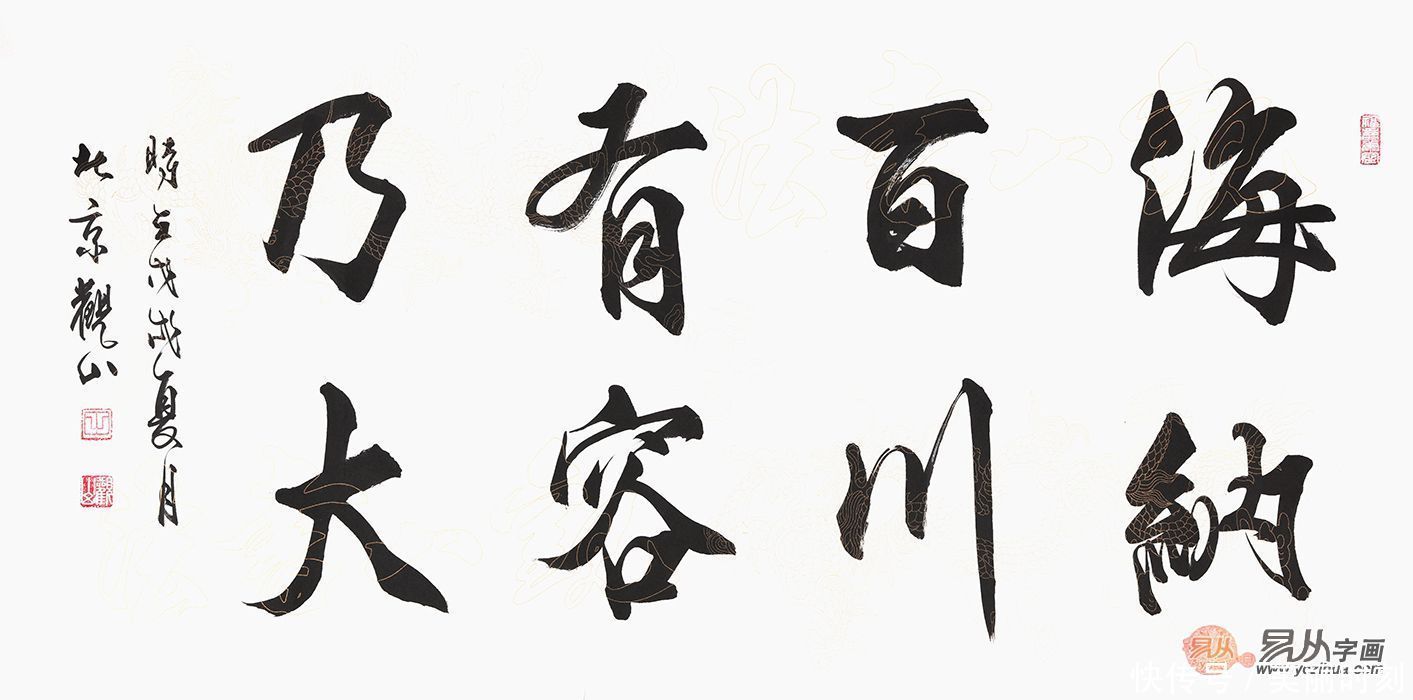 海納
百川
有容
乃大
時在戊戌夏月
北京觀山
易从字画
www.yczihua.com
快传号